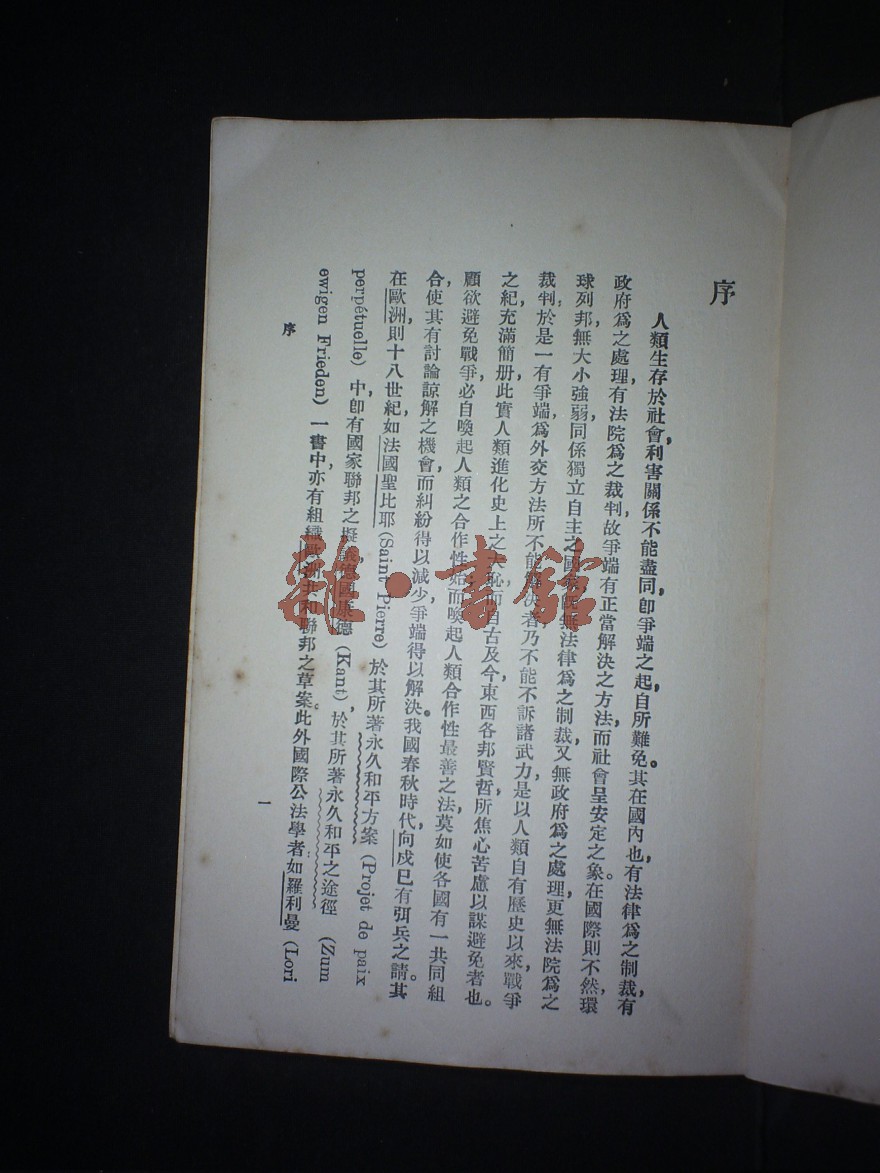 序
人類生存於社會，利害關係不能盡同，卽爭端之起，自所難免。其在國內也，有法律爲之制裁，有
政府爲之處理，有法院爲之裁判，故爭端有正當解決之方法，而社會呈安定之象。在國際則不然，環
球列邦，無大小強弱，同係獨立自主之國家，旣無法律爲之制裁，又無政府爲之處理，更無法院爲之
裁判；於是一有爭端，爲外交方法所不能解決者，乃不能不訴諸武力，是以人類自有歷史以來，戰爭
之紀，充滿簡册，此實人類進化史上之大恥，而自古及今，東西各邦賢哲所焦心苦慮以謀避免者也。
顧欲避免戰爭，必自喚起人類之合作性始；而喚起人類合作性最善之法，莫如使各國有一共同組
合，使其有討論諒解之機會，而糾紛得以減少，爭端得以解決。我國春秋時代，向戌巳有弭兵之請。其
在歐洲，則十八世紀如法國聖比耶 (Saint Pierre) 於其所著永久和平方案 (Projet de paix
perpétuelle) 中，卽有國家聯邦之擬議，德國康德 (Kant)，於其所著永久和平之途徑 (Zum
ewigen Frieden) 一書中，亦有組織歐洲共和聯邦之草案。此外國際公法學者：如羅利曼 (Lori
序
一
雜·書館